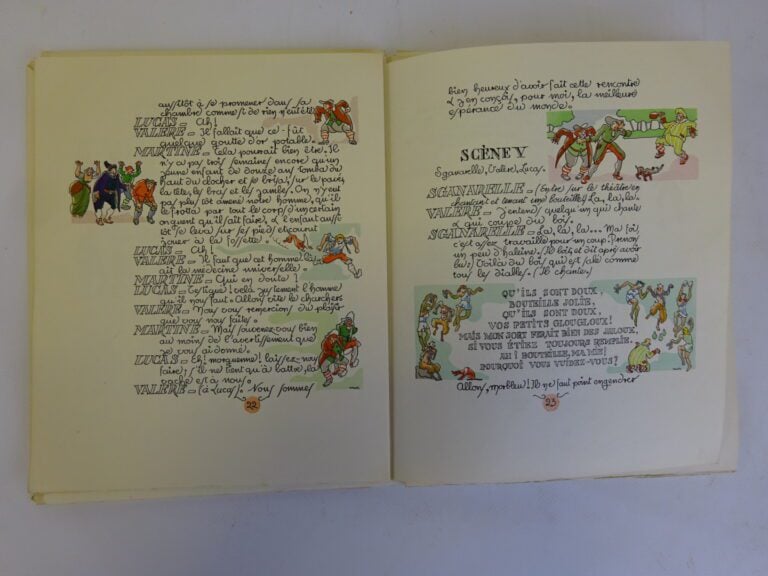 aussitôt à se promener dans sa
chambre comme si de rien n'eut été.
LUCAS – Ah!
VALERE – Il fallait que ce fût
quelque goutte d'or potable.
MARTINE – Cela pourrait bien être. Il
n'y a pas trois semaines encore qu'un
jeune enfant de douze ans tomba du
haut du clocher et se brisa, sur le pavé,
la tête, les bras et les jambes. On n'y eut
pas plus tôt amené notre homme, qu'il
le frotta par tout le corps d'un certain
onguent qu'il sait faire, & l'enfant aussi
tôt se leva sur ses pieds et courut
jouer à la fossette.
LUCAS – Ah!
VALERE – Il faut que cet homme là
ait la médecine universelle.
MARTINE – Qui en doute!
LUCAS – Testigué! velà justement l'homme
qu'il nous faut. Allons vite le charcher.
VALERE – Nous vous remercions du plaisir
que vous nous faites.
MARTINE – Mais souvenez-vous bien
au moins de l'avertissement que
je vous ai donné.
LUCAS – Eh! morguenne! laissez-nous
faire; s'il ne tient qu'à battre, la
vache est à nous.
VALERE – (à Lucas). Nous sommes
22
bien heureux d'avoir fait cette rencontre
& j'en conçois, pour moi, la meilleure
espérance du monde.
SCÈNE V
Sganarelle, Valère, Lucas.
SGANARELLE – Entre sur le théâtre en
chantant et tenant une bouteille. La, la, la.
VALERE – J'entends quelqu'un qui chante
& qui coupe du bois.
SGANARELLE – La, la, la... Ma foi,
c'est assez travaillé pour un coup. Prenons
un peu d'haleine. (Il boit et dit après avoir
bu:) Voilà du bois qui est salé comme
tous les diables. (Il chante.)
QU'ILS SONT DOUX,
BOUTEILLE JOLIE,
QU'ILS SONT DOUX,
VOS PETITS GLOUGLOUX!
MAIS MON SORT FERAIT BIEN DES JALOUX,
SI VOUS ÉTIEZ TOUJOURS REMPLIE.
AH! BOUTEILLE, MA MIE,
POURQUOI VOUS VUIDEZ-VOUS?
Allons, morbleu! Il ne faut point engendrer
23